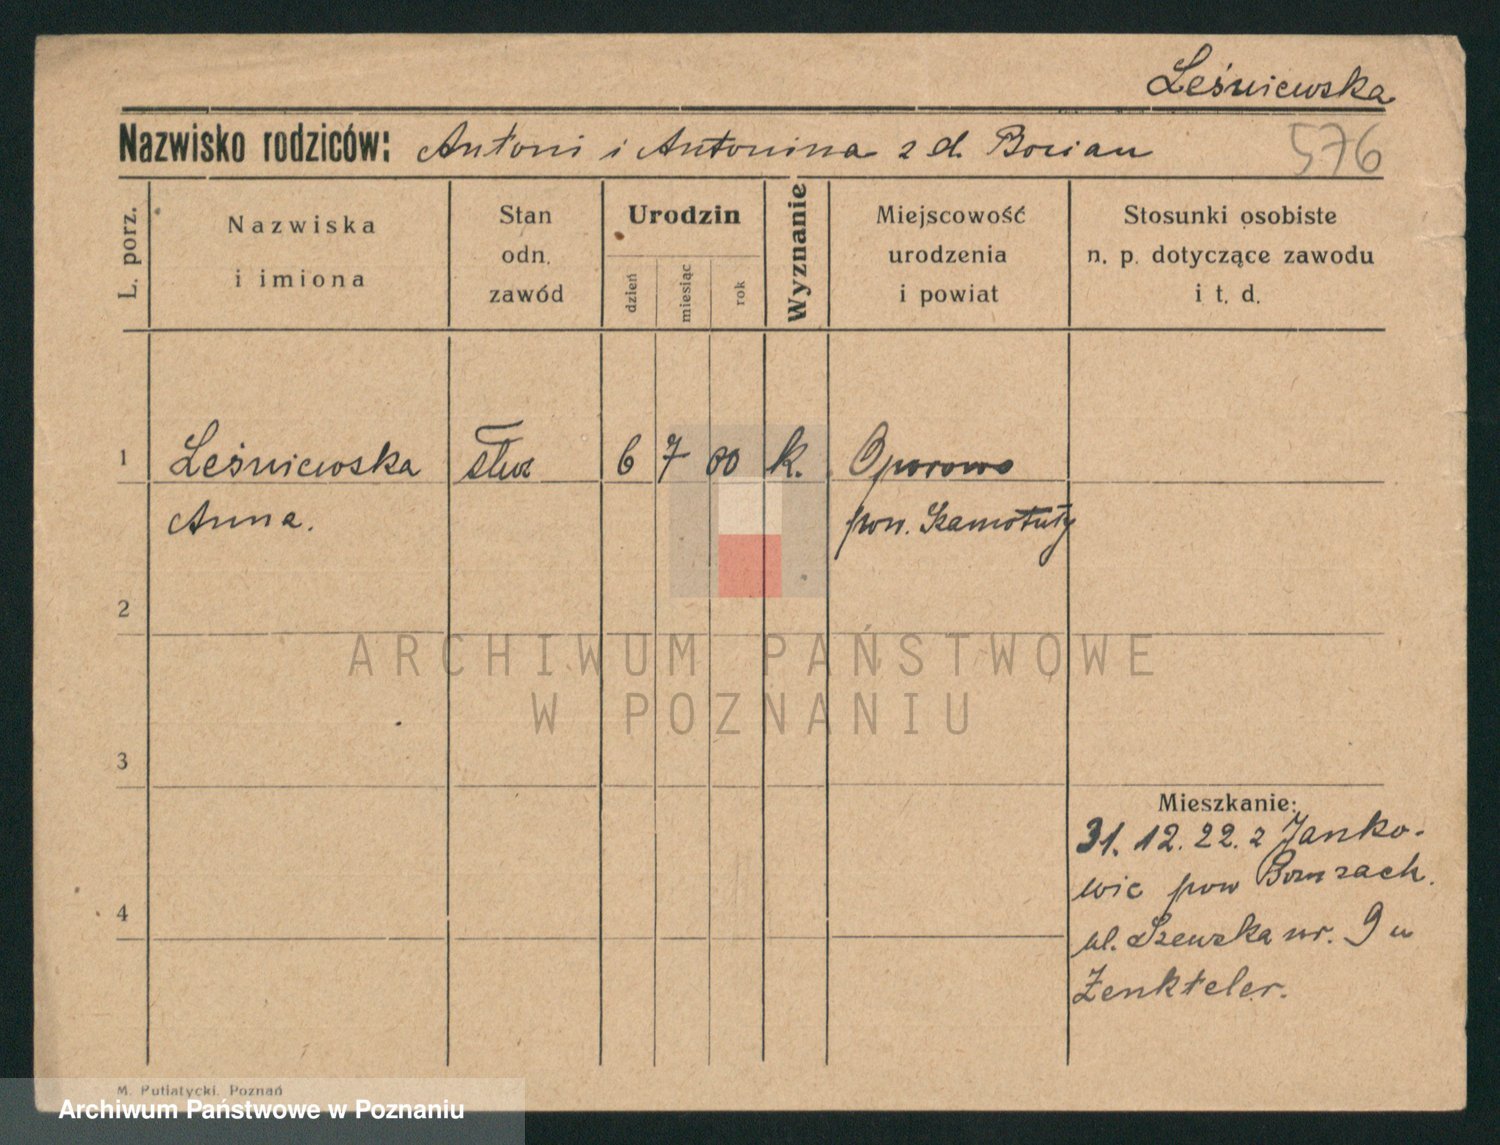 Leśniewska
Nazwisko rodziców: Antoni i Antonina z d. Bocian
576
L. porz.
Nazwiska
i imiona
Stan
odn.
zawód
Urodzin
dzień
miesiąc
rok
Wyznanie
Miejscowość
urodzenia
i powiat
Stosunki osobiste
n. p. dotyczące zawodu
i t. d.
1 Leśniewska służ 6 7 00 k. Oporowo
Anna. pow. Szamotuły
2
ARCHIWUM PAŃSTWOWE
W POZNANIU
3
Mieszkanie:
31. 12. 22. z Janko-
wic pow
4
ul. Szewska nr. 9 u
Zenkteler.
M. Putiatycki, Poznań
Archiwum Państwowe w Poznaniu